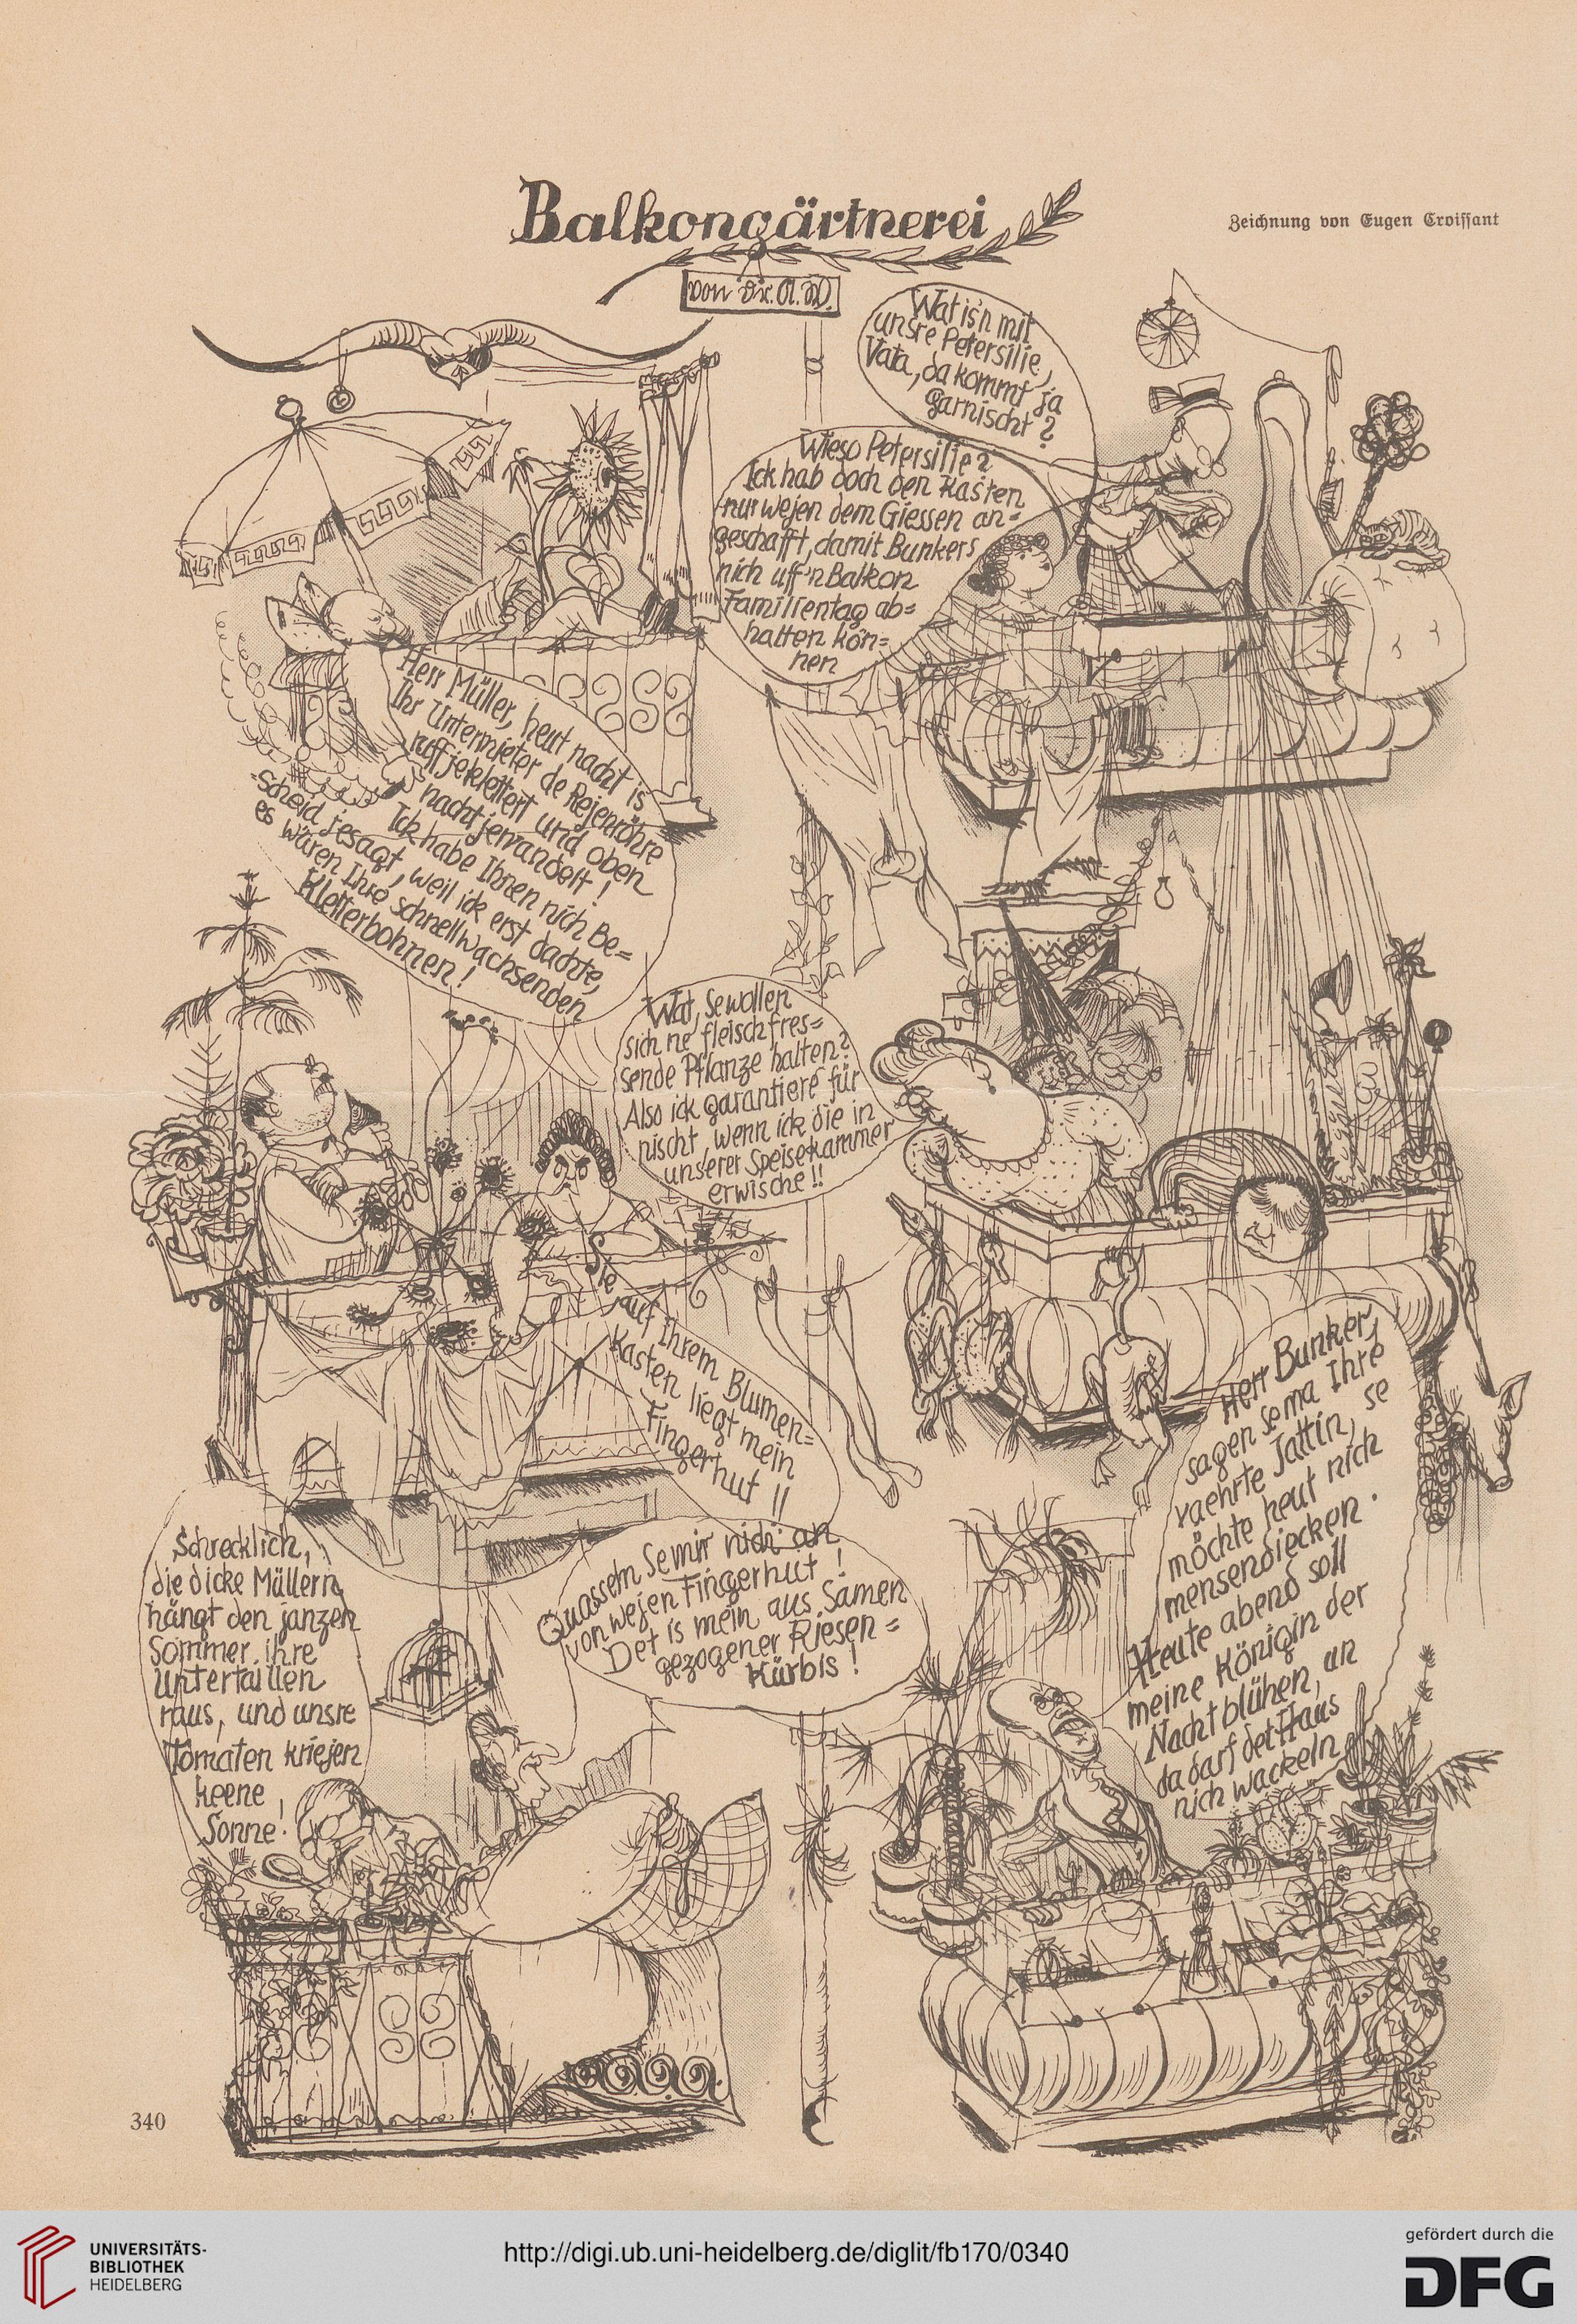 Balkongärtnerei
von Dr. A. W.
Zeichnung von Eugen Croissant
Wat is'n mit
unsre Petersilie,
Vata, da kommt ja
garnischt?
Wieso Petersilie?
Ick hab doch den Kasten
nur wejen dem Giessen an=
geschafft, damit Bunkers
nich uff'n Balkon
Familientag ab=
halten kön=
nen
Herr Müller, heut nacht is
Ihr Untermieter de Rejenröhre
ruffjeklettert und oben
nachtjewandelt!
Ick habe Ihnen nich Be=
scheid jesagt, weil ick erst dachte,
es wären Ihre schnellwachsenden
Kletterbohnen!
Wat, Se wollen
sich ne fleischfres=
sende Pflanze halten?
Also ick garantiere für
nischt, wenn ick die in
unserer Speisekammer
erwische!!
Sie, auf Ihrem Blumen=
kasten liegt mein
Fingerhut!!
Herr Bunker,
sagen Se ma Ihre
vaehrte Jattin, se
möchte heut nich
mensendiecken.
Heute abend soll
meine Königin der
Nacht blühen, un
da darf det Haus
nich wackeln
Schrecklich,
die dicke Müllern
hängt den janzen
Sommer ihre
Untertaillen
raus, und unsre
Tomaten kriejen
keene
Sonne!
Quasseln Se mir nich an
von wejen Fingerhut!
Det is mein aus Samen
gezogener Riesen=
kürbis!
340
UNIVERSITÄTS-
BIBLIOTHEK
HEIDELBERG
http://digi.ub.uni-heidelberg.de/diglit/fb170/0340
gefördert durch die
DFG